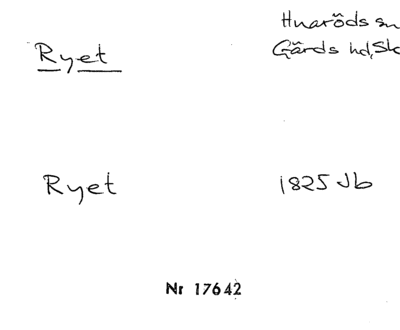 Hnaröds sn
Ryet
Gärds hd, Sk
Ryet 1825 Jb
Nr 17642